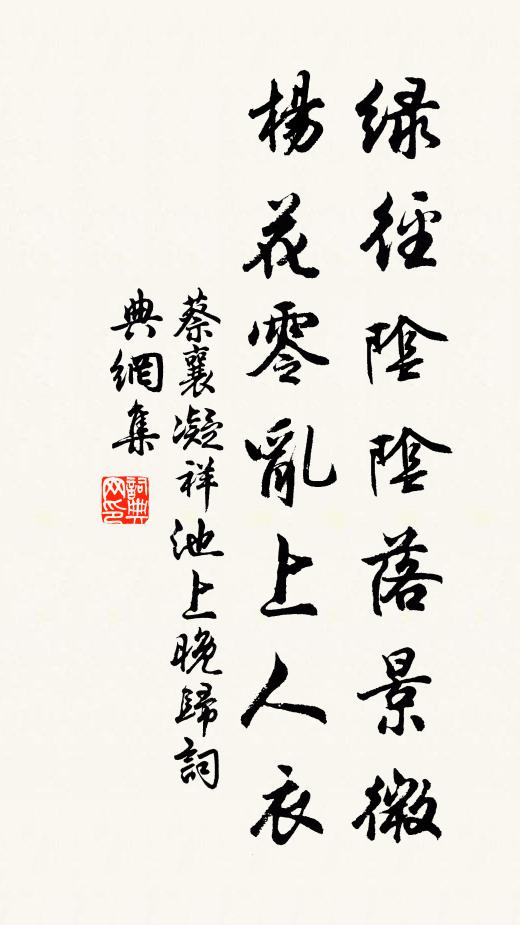 緑徑陰陰落景微
楊花零亂上人衣
蔡襄凝祥池上晚歸詞
典網集
詞典网印